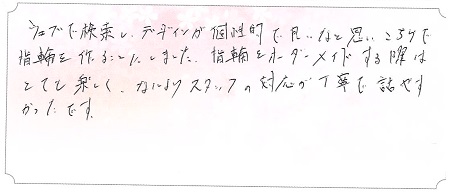 ウェブで検索し、デザインが個性的で良いなと思いこちらで
指輪を作ることにしました。指輪をオーダーメイドする際は
とても楽しく、なによりスタッフの対応が丁寧で話やす
かったです。